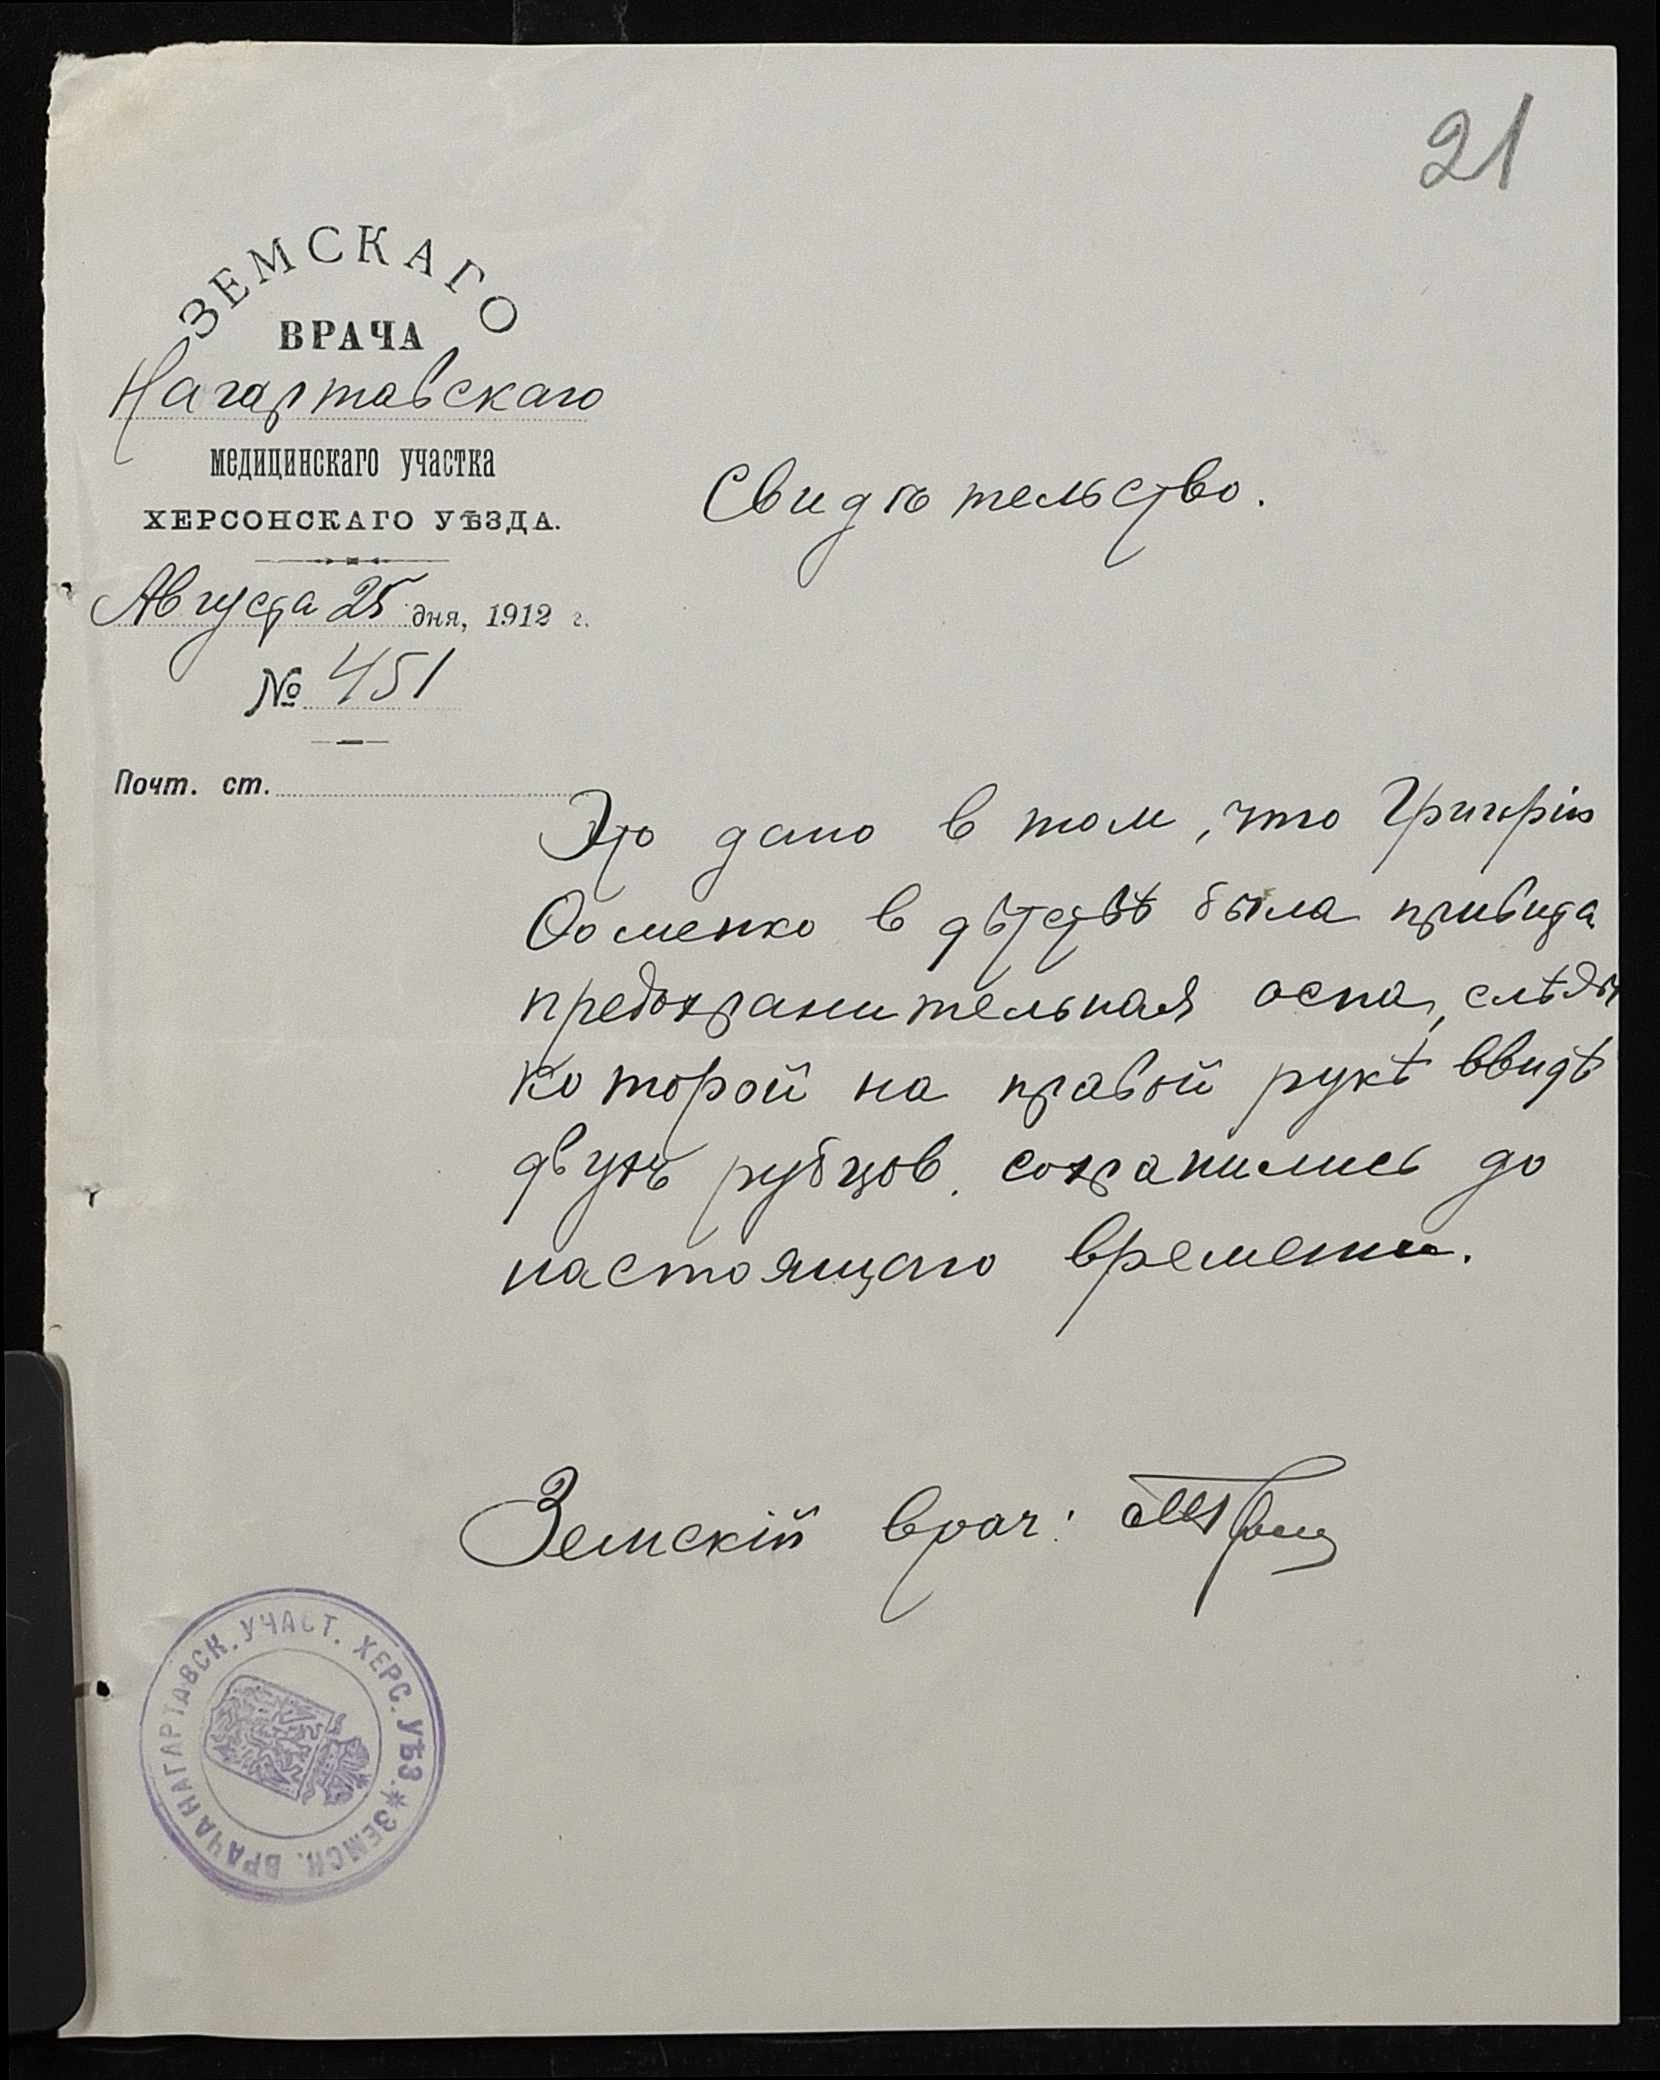 21
ЗЕМСКАГО
ВРАЧА
Нагартавскаго
медицинскаго участка
ХЕРСОНСКАГО УѢЗДА.
Августа 25 дня, 1912 г.
№ 451
Почт. ст.
Свидѣтельство.
Это дано в том, что Григорію
Фоменко в дѣтствѣ была привита
предохранительная оспа, слѣды
которой на правой рукѣ ввидѣ
двухъ рубцов сохранились до
настоящаго времени.
Земскій врач:
НАГАРТАВСК. УЧАСТ. ХЕРС. УѢЗ. * ЗЕМСК. ВРАЧА